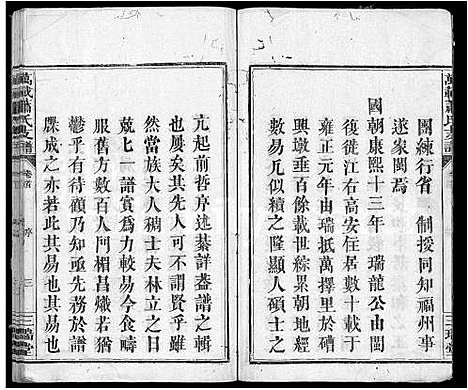 萬載蕭氏支譜
團練行省 制授同知福州事
遂家閩焉
國朝康熙十三年 瑞龍公由閩
復徙江右高安任居數十載于
雍正元年由瑞抵萬擇里於做
與墩居焉世綜累朝地經
數易瓜瓞績之隆引人碩士之
亢起前哲序述綦詳荃譜之輯
屢矣其先人可不謂賢乎雖
然當族大人稠士夫林立之日
兢七一譜實為力較易今食疇
服舊方粗相昌熾若有
鬱乎有待顧乃知急務於譜
牒成之亦若此其易也其易也
萬載蕭氏支譜
卷首
序
三
三瑞堂
三瑞堂